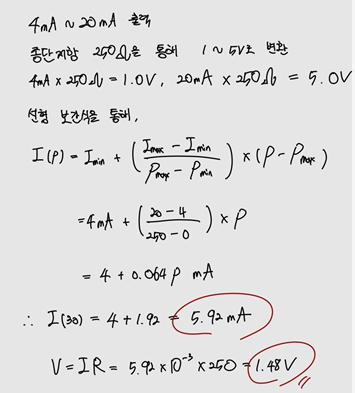 4mA ~ 20mA 출력
종단저항 250Ω을 통해 1 ~ 5V로 변환
4mA × 250Ω = 1.0V, 20mA × 250Ω = 5.0V
선형 보간식을 통해,
I(P) = Imin + ( (Imax - Imin) / (Pmax - Pmin) ) × (P - Pmax)
= 4mA + ( (20 - 4) / (250 - 0) ) × P
= 4 + 0.064P mA
∴ I(30) = 4 + 1.92 = 5.92mA
V = IR = 5.92 × 10⁻³ × 250 = 1.48V